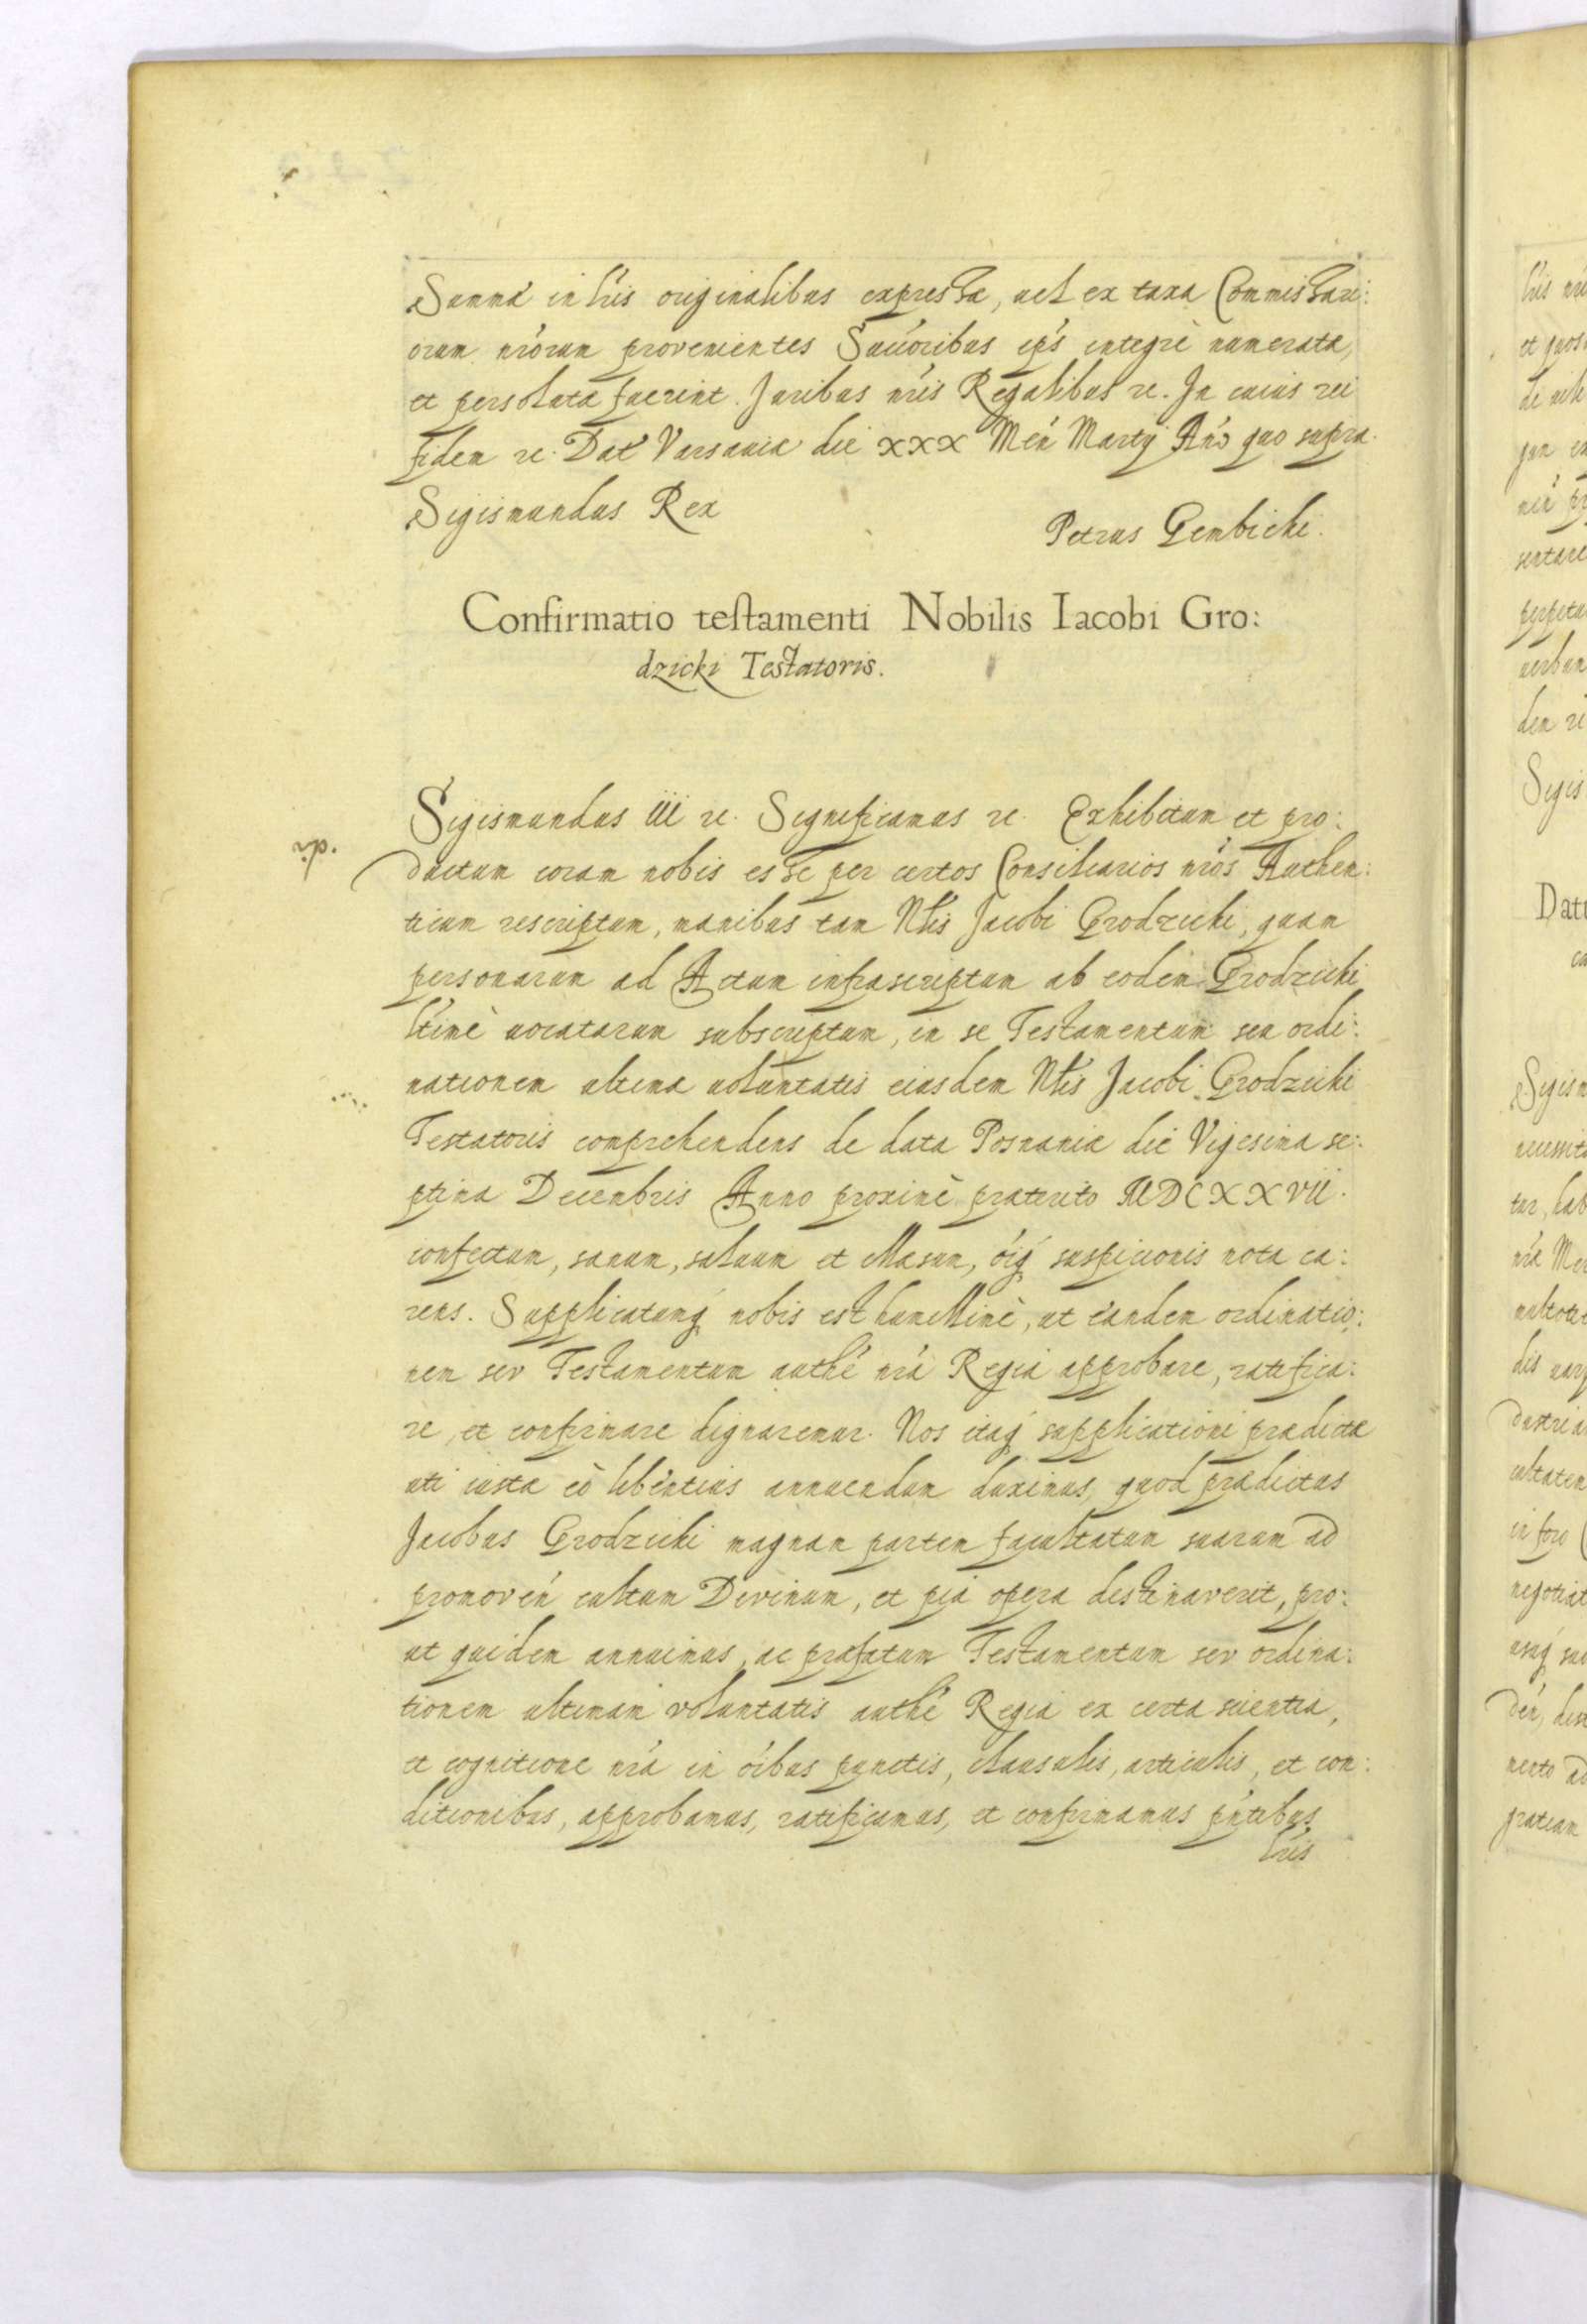 Summa in lris originalibus expressæ, uel ex taxa Commissari:
orum nrorum provenientes Succoribus eps integrè numerata,
et persoluta fuerint. Juribus nris Regalibus rc. In cuius rei
fidem rc. Dat Varsauiæ die XXX Men Martij Anno quo supra.
Sigismundus Rex
Petrus Gembicki.
Confirmatio testamenti Nobilis Iacobi Gro:
dzicki Testatoris.
Sigismundus III rc. Significamus rc. Exhibitum et pro:
ductum coram nobis esse per certos Consiliarios nros Authen:
ticum rescriptum, manibus tam Nlis Jacobi Grodzicki, quam
personarum ad Actum infrascriptum ab eodem Grodzicki
ltimè uocatarum subscriptum, in se Testamentum seu ordi:
nationem ultimæ uoluntatis eiusdem Nlis Jacobi Grodzicki
Testatoris comprehendens de data Posnaniæ die Vigesima se:
ptima Decembris Anno proximè præterito MDCXXVII.
confectum, sanum, saluum et illæsum, oiq suspicionis nota ca:
rens. Supplicatumq nobis est humillimè, ut eandem ordinatio:
nem sev Testamentum authe nra Regia approbare, ratifica:
re, et confirmare dignaremur. Nos itaq supplicationi prædictæ
uti iustæ eò libentius annuendum duximus, quod prædictus
Jacobus Grodzicki magnam partem facultatum suarum ad
promoven cultum Divinum, et pia opera destinaverit, pro:
ut quidem annuimus, ac præfatum Testamentum sev ordina:
tionem ultimam voluntatis authe Regia ex certa scientia,
et cognitione nra in oibus punctis, clausulis, articulis, et con:
ditionibus, approbamus, ratificamus, et confirmamus pntibus
lris